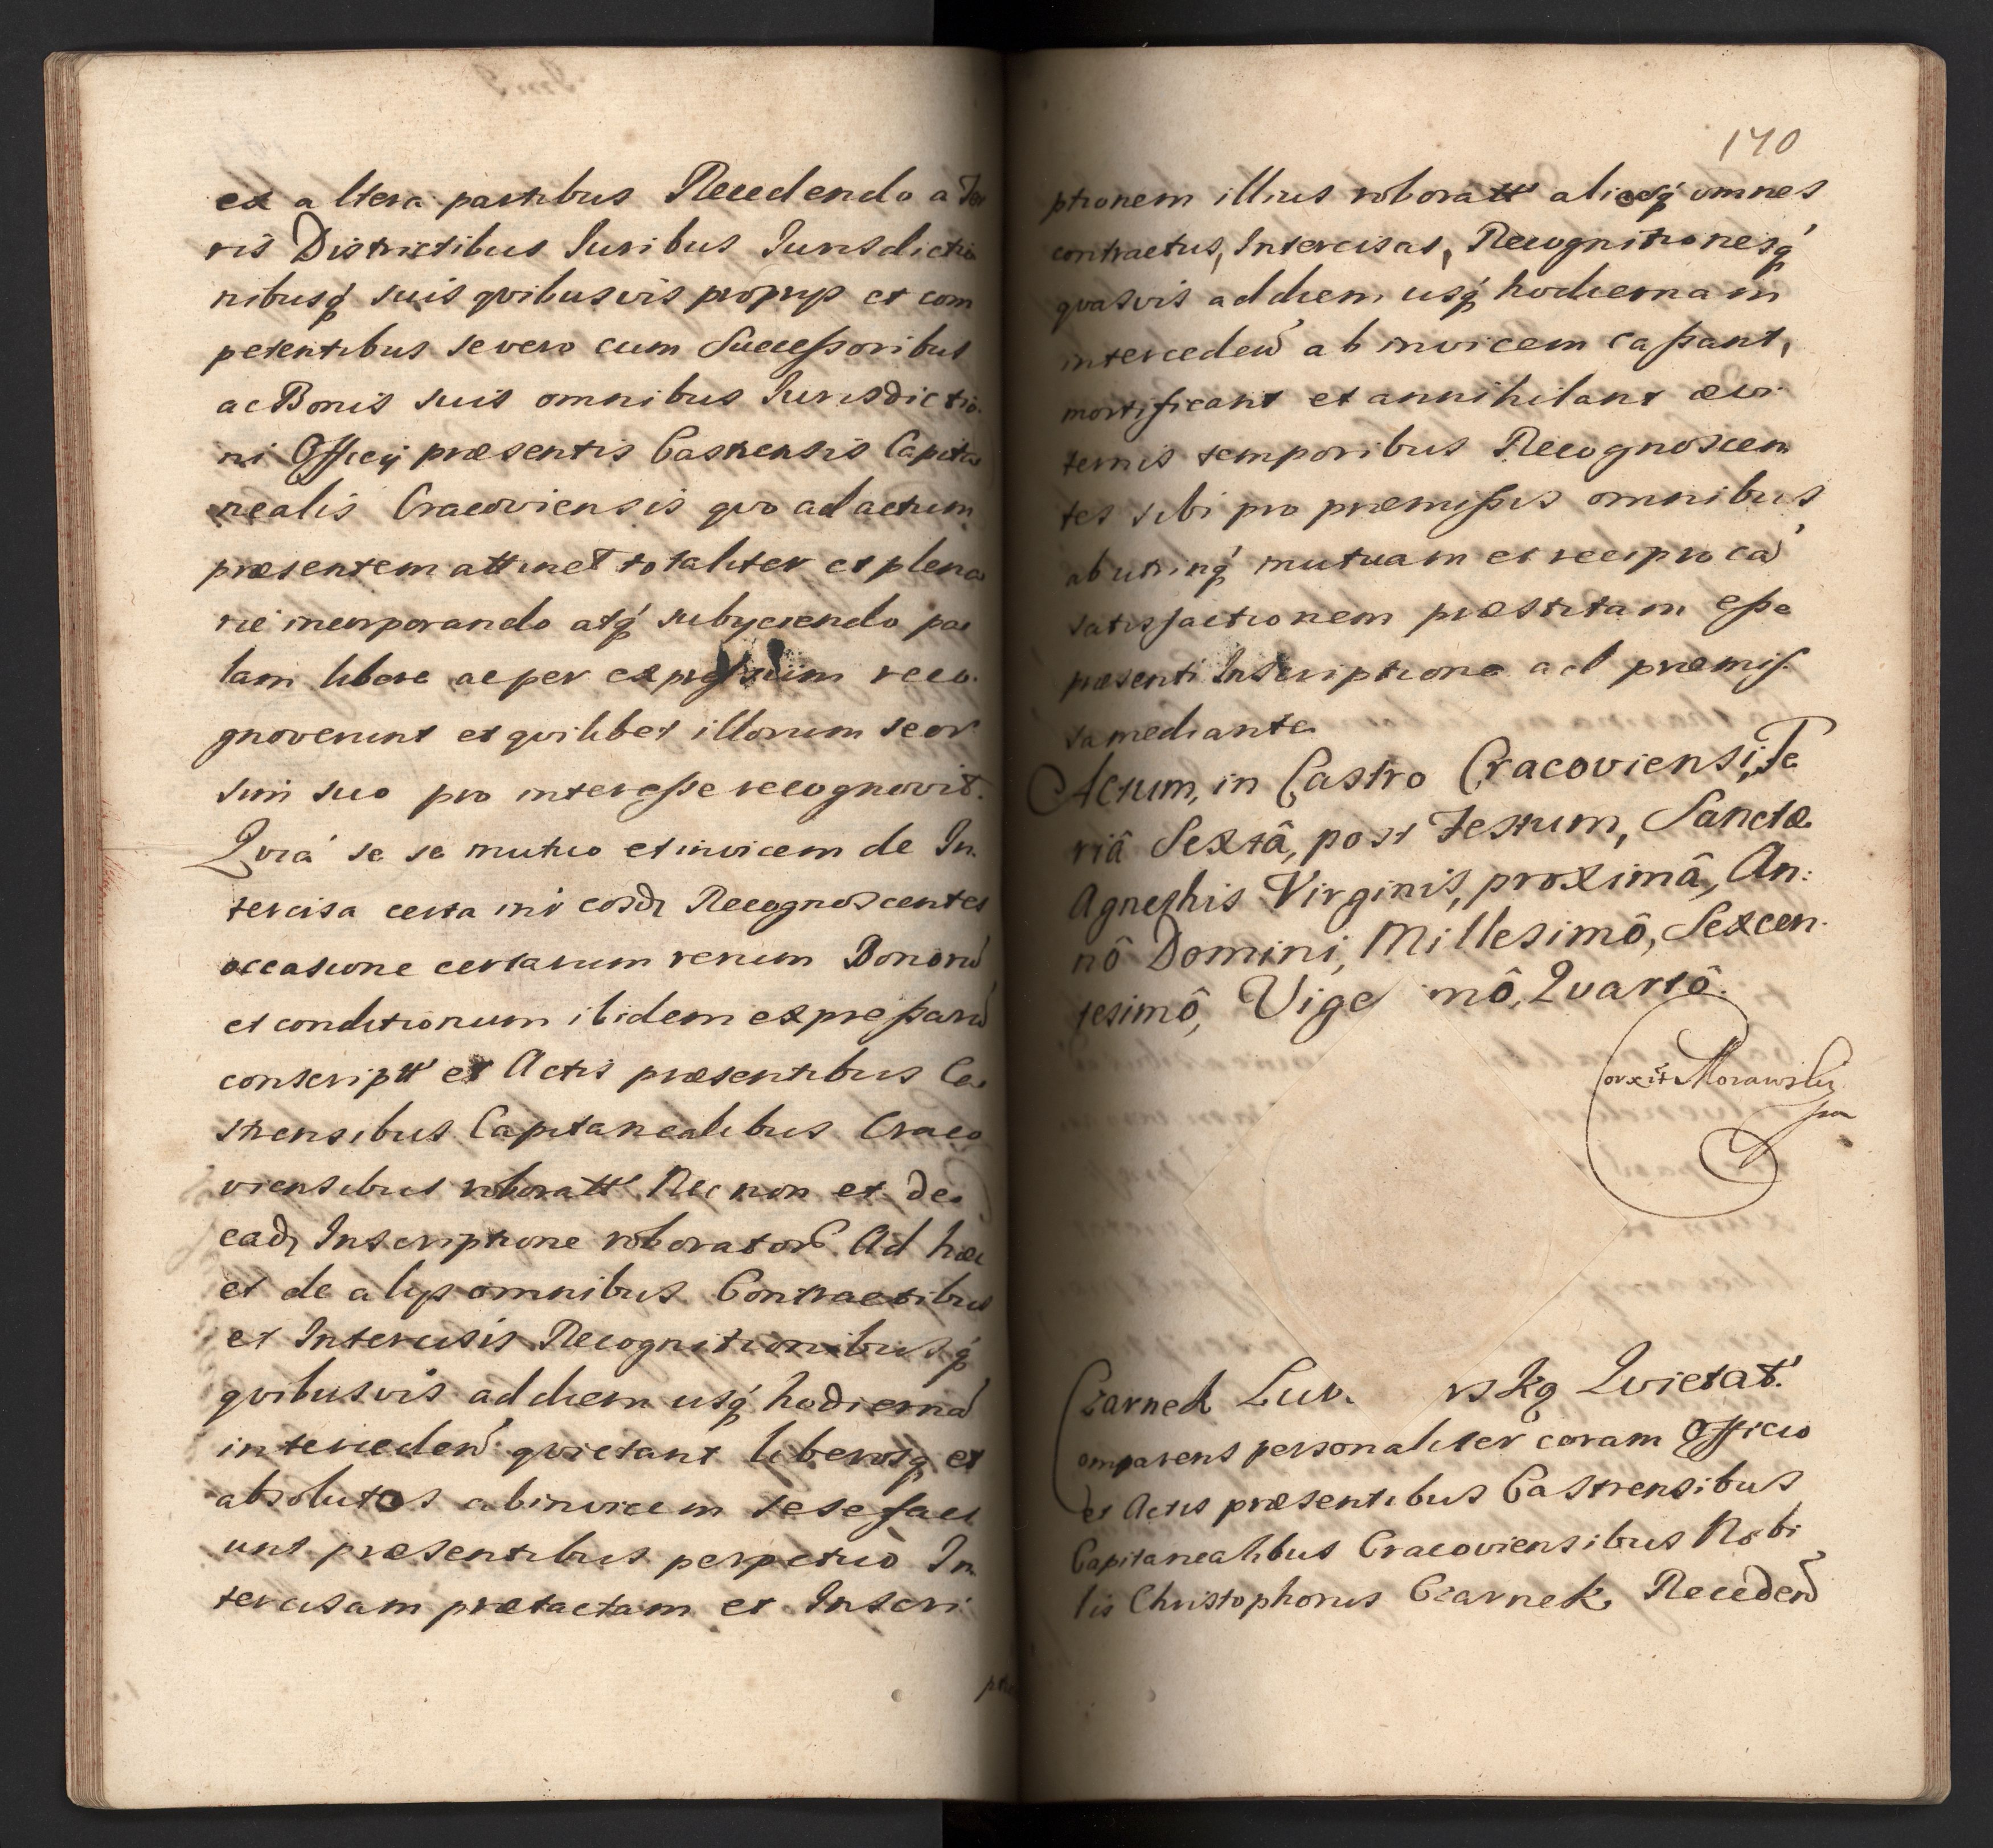 ex altera partibus Recedendo a Ter
ris Districtibus Iuribus Iurisdictio
nibusq́ suis qvibusvis proprijs et com
petentibus se vero cum Successoribus
ac Bonis suis omnibus Iurisdictio
ni Officij præsentis Castrensis Capita
nealis Cracoviensis qvo ad actum
præsentem attinet totaliter et plena
rie incorporando atq́ subyciendo pa
lam libere ac per expressum reco
gnoverunt et qvilibet illorum seor
sim suo pro interesse recognovit.
Qvia se se mutuo et invicem de In
tercisa certa int̃ eosd̃ Recognoscentes
occasione certarum rerum Bonorũ
et conditionum ibidem expressarũ
conscriptt et Actis præsentibus Ca
strensibus Capitanealibus Craco
viensibus roboratt Nec non et de
ead̃ Inscriptione roborator̃. Ad hæc
et de alijs omnibus Contractibus
et Intercisis Recognitionibusq́
qvibusvis ad diem usq́ hodiernã
interceden̄ qvietant liberosq́ et
absolutos ab invicem sese faci
unt præsentibus perpetuò In
tercisam prætactam et Inscri
ptio
170
ptionem illius roboratt aliasq́ omnes
contractus, Intercisas, Recognitionesq́
qvasvis ad diem usq́ hodiernam
interceden̄ ab invicem cassant,
mortificant et annihilant ævi
ternis temporibus Recognoscen
tes sibi pro præmissis omnibus
ab utrinq́ mutuam et reciprocã
satisfactionem præstitam esse
præsenti Inscriptione ad præmis
sa mediante
Actum, in Castro Cracoviensi, Fe
riâ Sextâ, post Festum, Sanctæ
Agnethis Virginis, proximâ, An:
nô Domini, Millesimô, Sexcen
tesimô, Vige mô, Qvartô.
Corxit Morawsky
Czarnek Lur. wskg Qvietat.
Comparens personaliter coram Officio
et Actis præsentibus Castrensibus
Capitanealibus Cracoviensibus Nobi
lis Christophorus Czarnek Receden̄